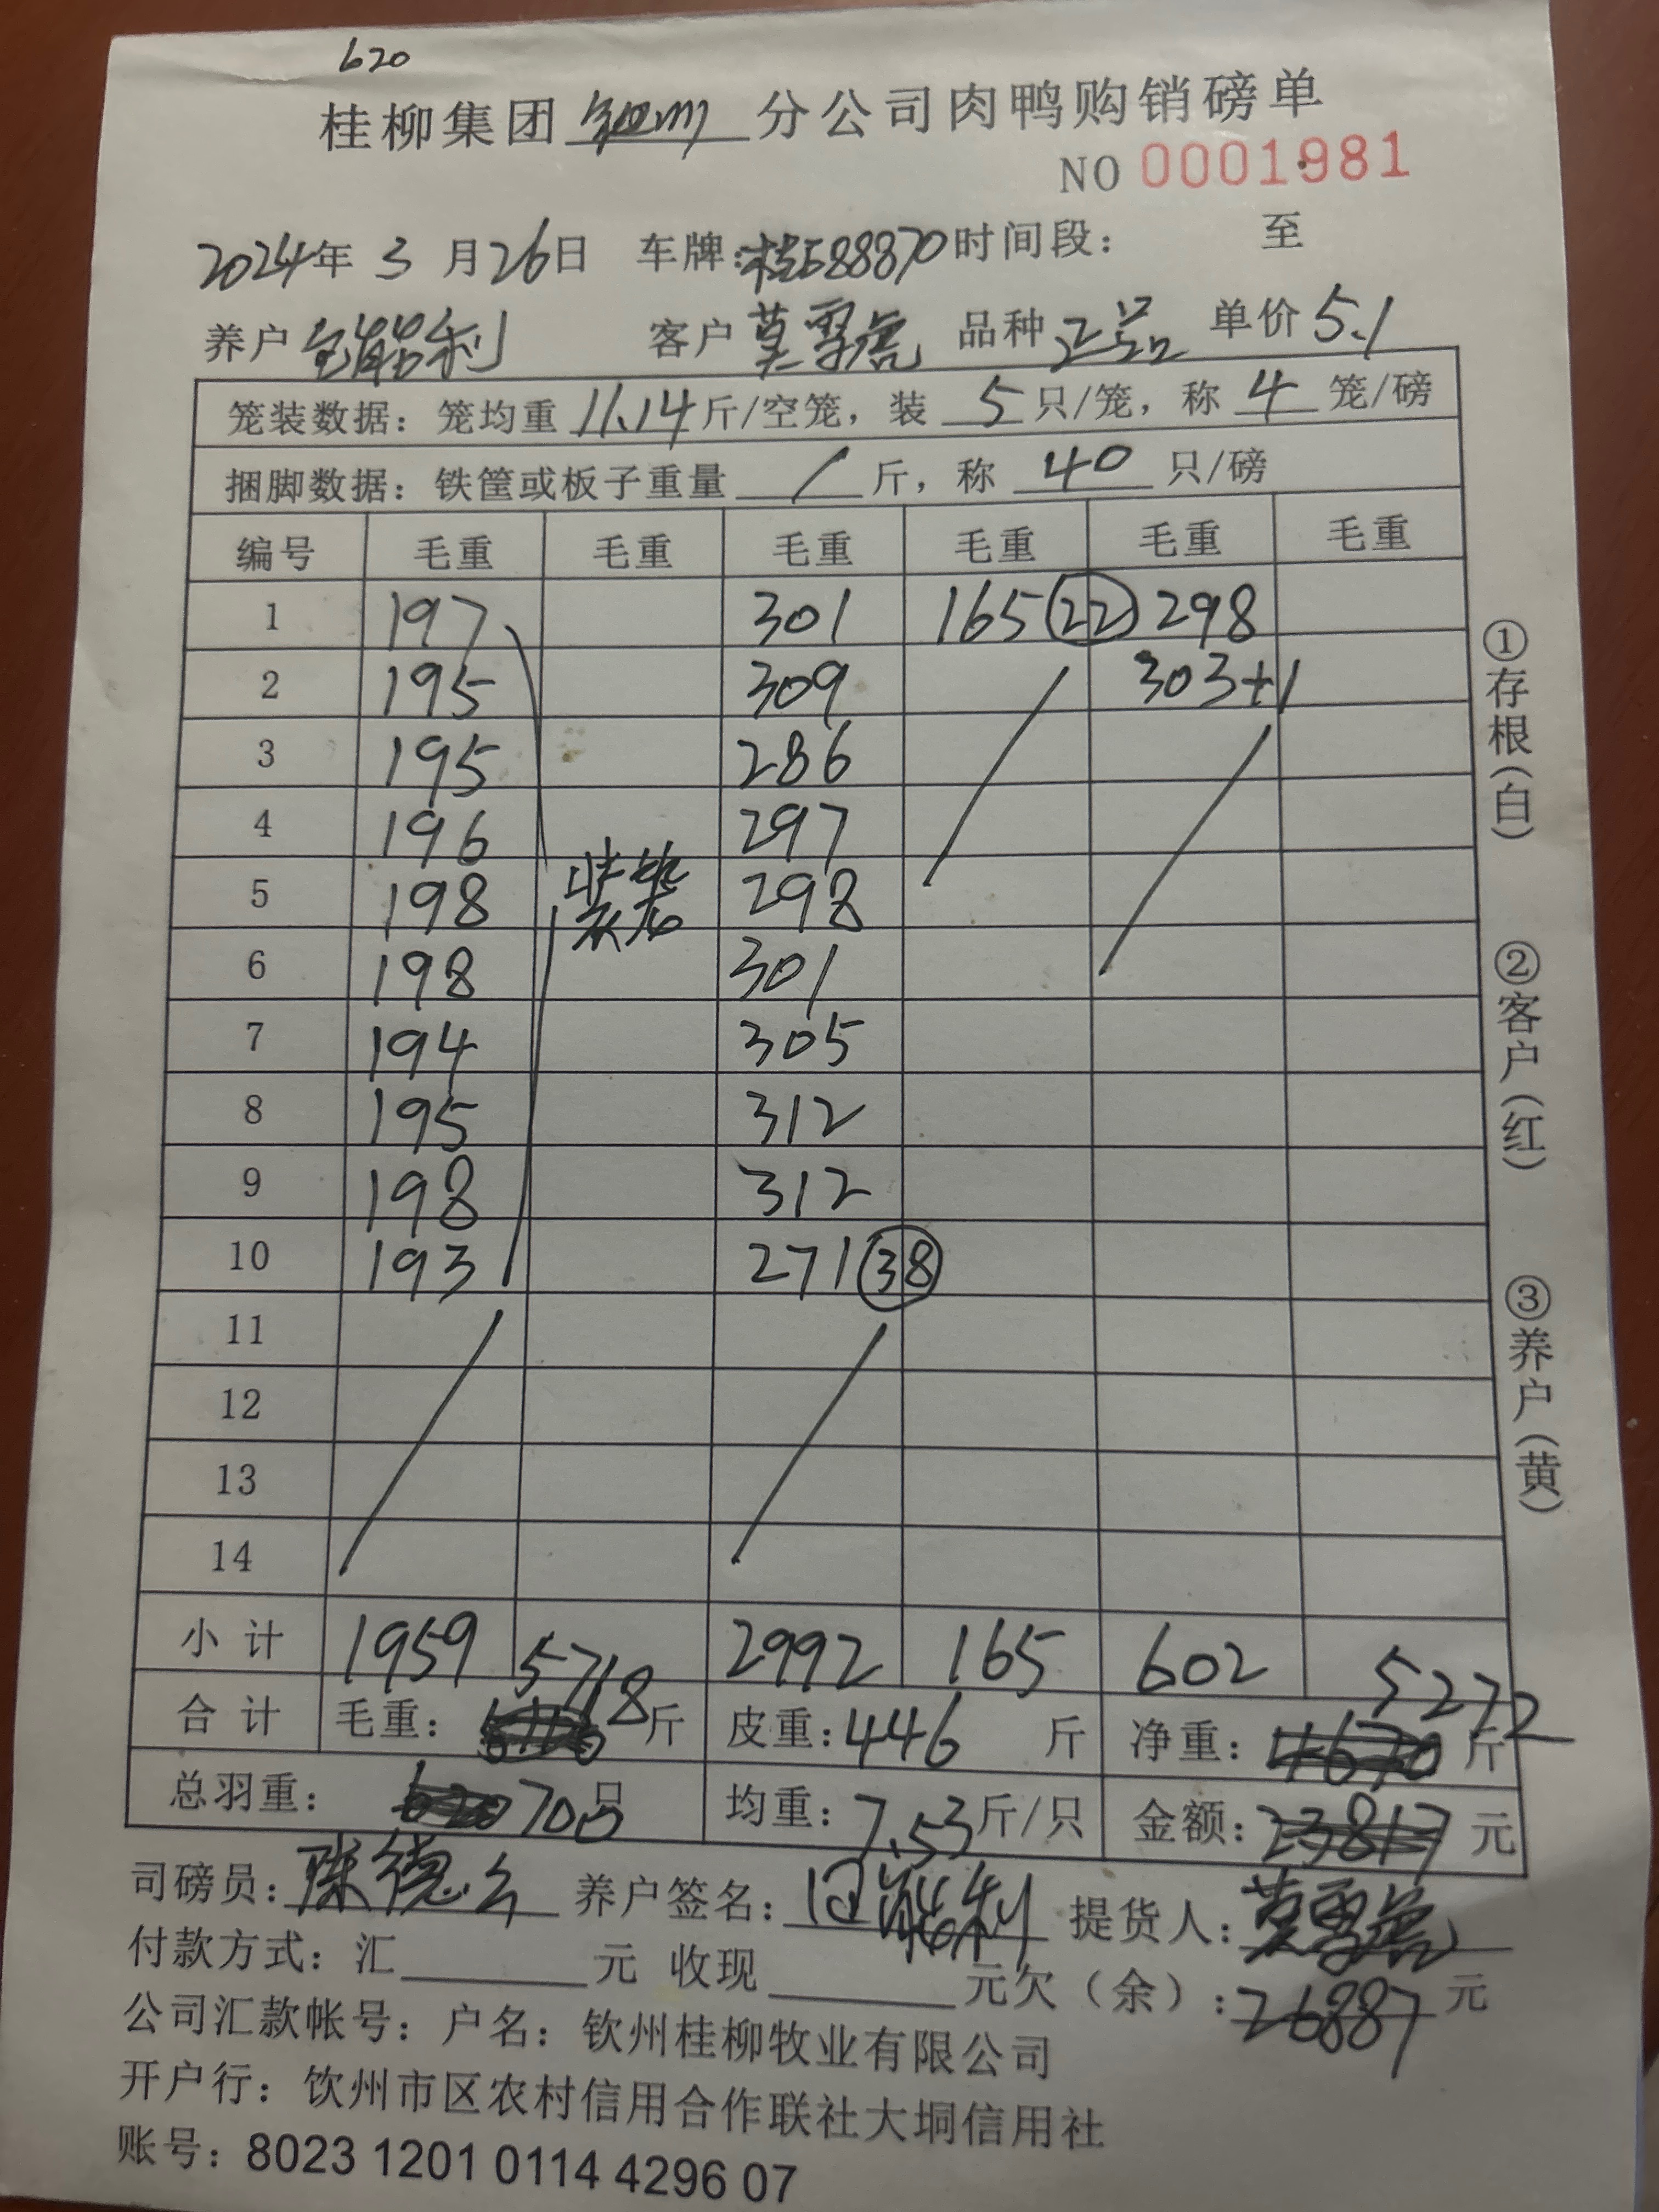 620
桂柳集团钦州分公司肉鸭购销磅单
NO 0001981
2024年 3 月26日 车牌:桂E88870 时间段: 至
养户 能利 客户 莫雪亮 品种 正品 单价 5.1
笼装数据: 笼均重 11.14 斤/空笼, 装 5 只/笼, 称 4 笼/磅
捆脚数据: 铁筐或板子重量 / 斤, 称 40 只/磅
编号 毛重 毛重 毛重 毛重 毛重 毛重
1 197 301 165 22 298
2 195 309 303+1
3 195 286
4 196 297
5 198 装笼 298
6 198 301
7 194 305
8 195 312
9 198 312
10 193 271 38
11
12
13
14
小计 1959 2992 165 602
合计 毛重: 5718 斤 皮重: 446 斤 净重: 5272 斤
总羽重: 700 只 均重: 7.53 斤/只 金额: 23817 元
司磅员: 陈德 养户签名: 能利 提货人: 莫雪亮
付款方式: 汇 元 收现 元欠(余): 26887 元
公司汇款帐号: 户名: 钦州桂柳牧业有限公司
开户行: 钦州市区农村信用合作联社大垌信用社
账号: 8023 1201 0114 4296 07
①存根(白)
②客户(红)
③养户(黄)